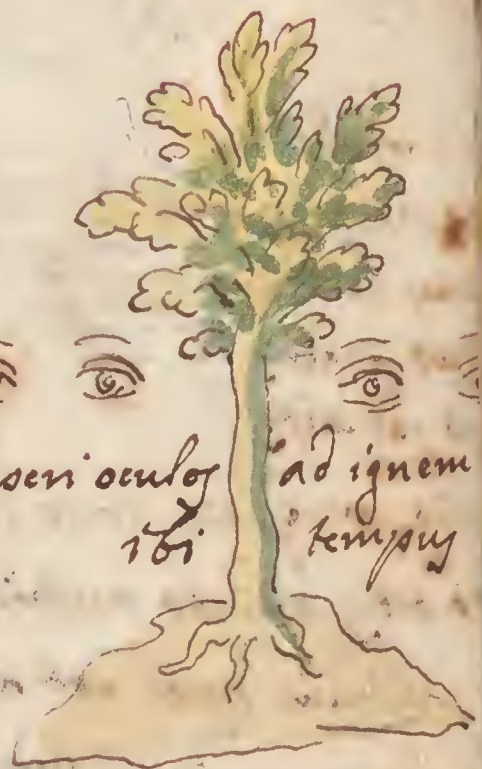 oculos ad ignem
ibi tempus